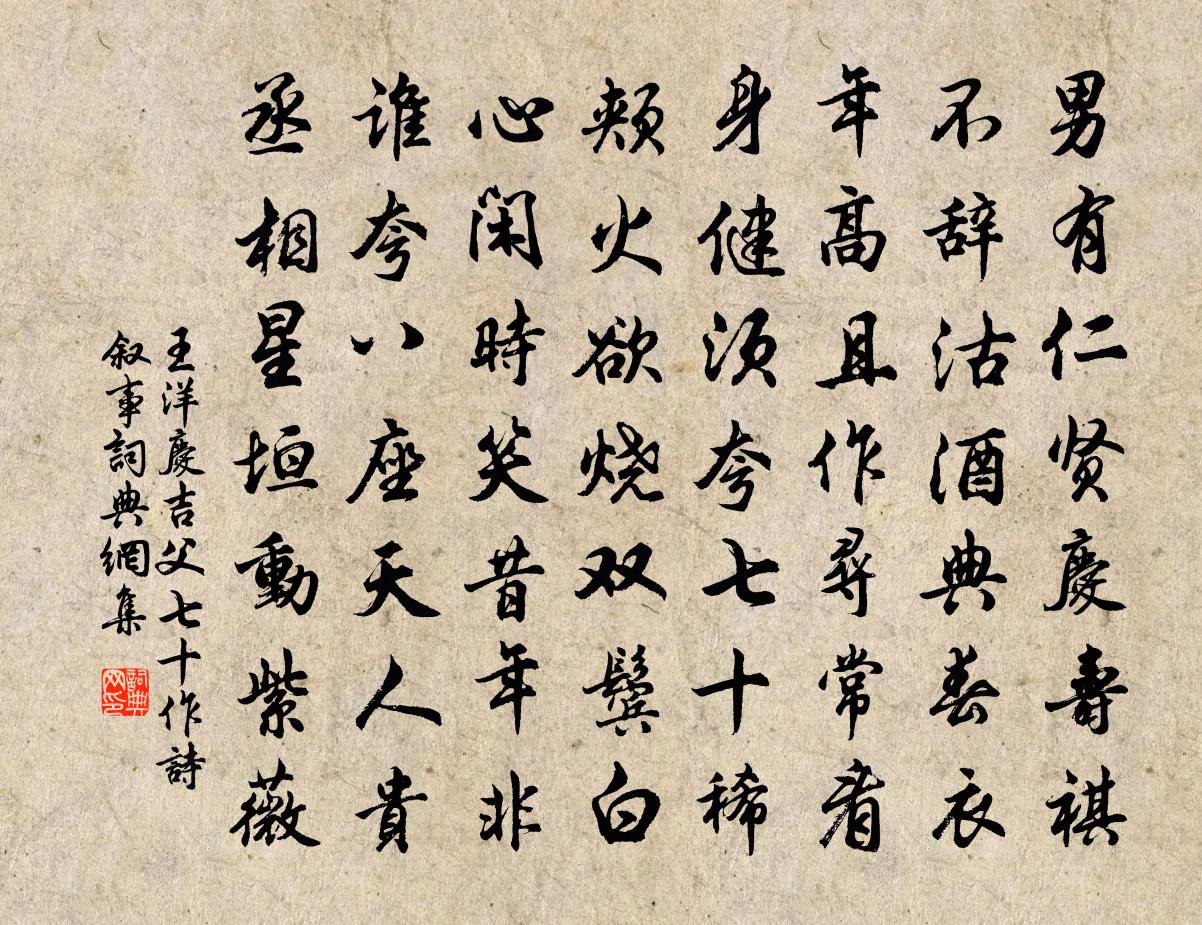 男有仁贤慶壽祺
不辞沽酒典春衣
年高且作尋常看
身健须夸七十稀
颊火欲烧双鬓白
心闲時笑昔年非
谁夸八座天人貴
丞相星垣動紫薇
王洋慶吉父七十作詩
叙事詞典網集
詞典网印